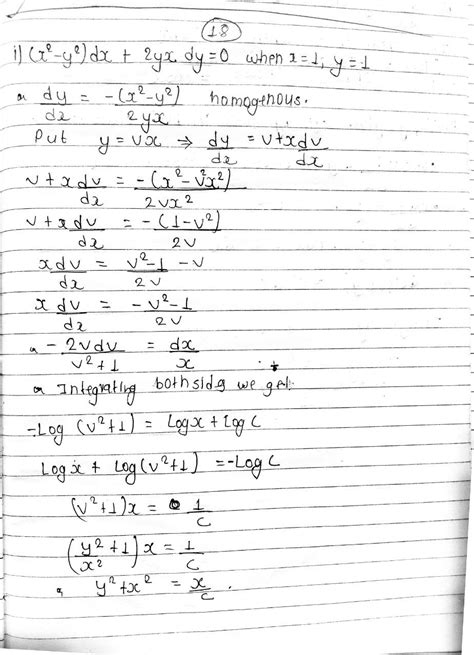 18
i) (x²-y²)dx + 2yx dy=0 when x=1, y=1
or dy/dx = -(x²-y²)/2yx homogenous.
Put y=vx → dy/dx = v+x dv/dx
v+x dv/dx = -(x²-v²x²)/2vx²
v+x dv/dx = -(1-v²)/2v
x dv/dx = v²-1/2v - v
x dv/dx = -v²-1/2v
or -2vdv/v²+1 = dx/x
or Integrating both sides we get:
-Log (v²+1) = Logx + Log C
Logx + Log(v²+1) = -Log C
(v²+1)x = 1/C
(y²/x² +1)x = 1/C
or y²+x² = x/C.